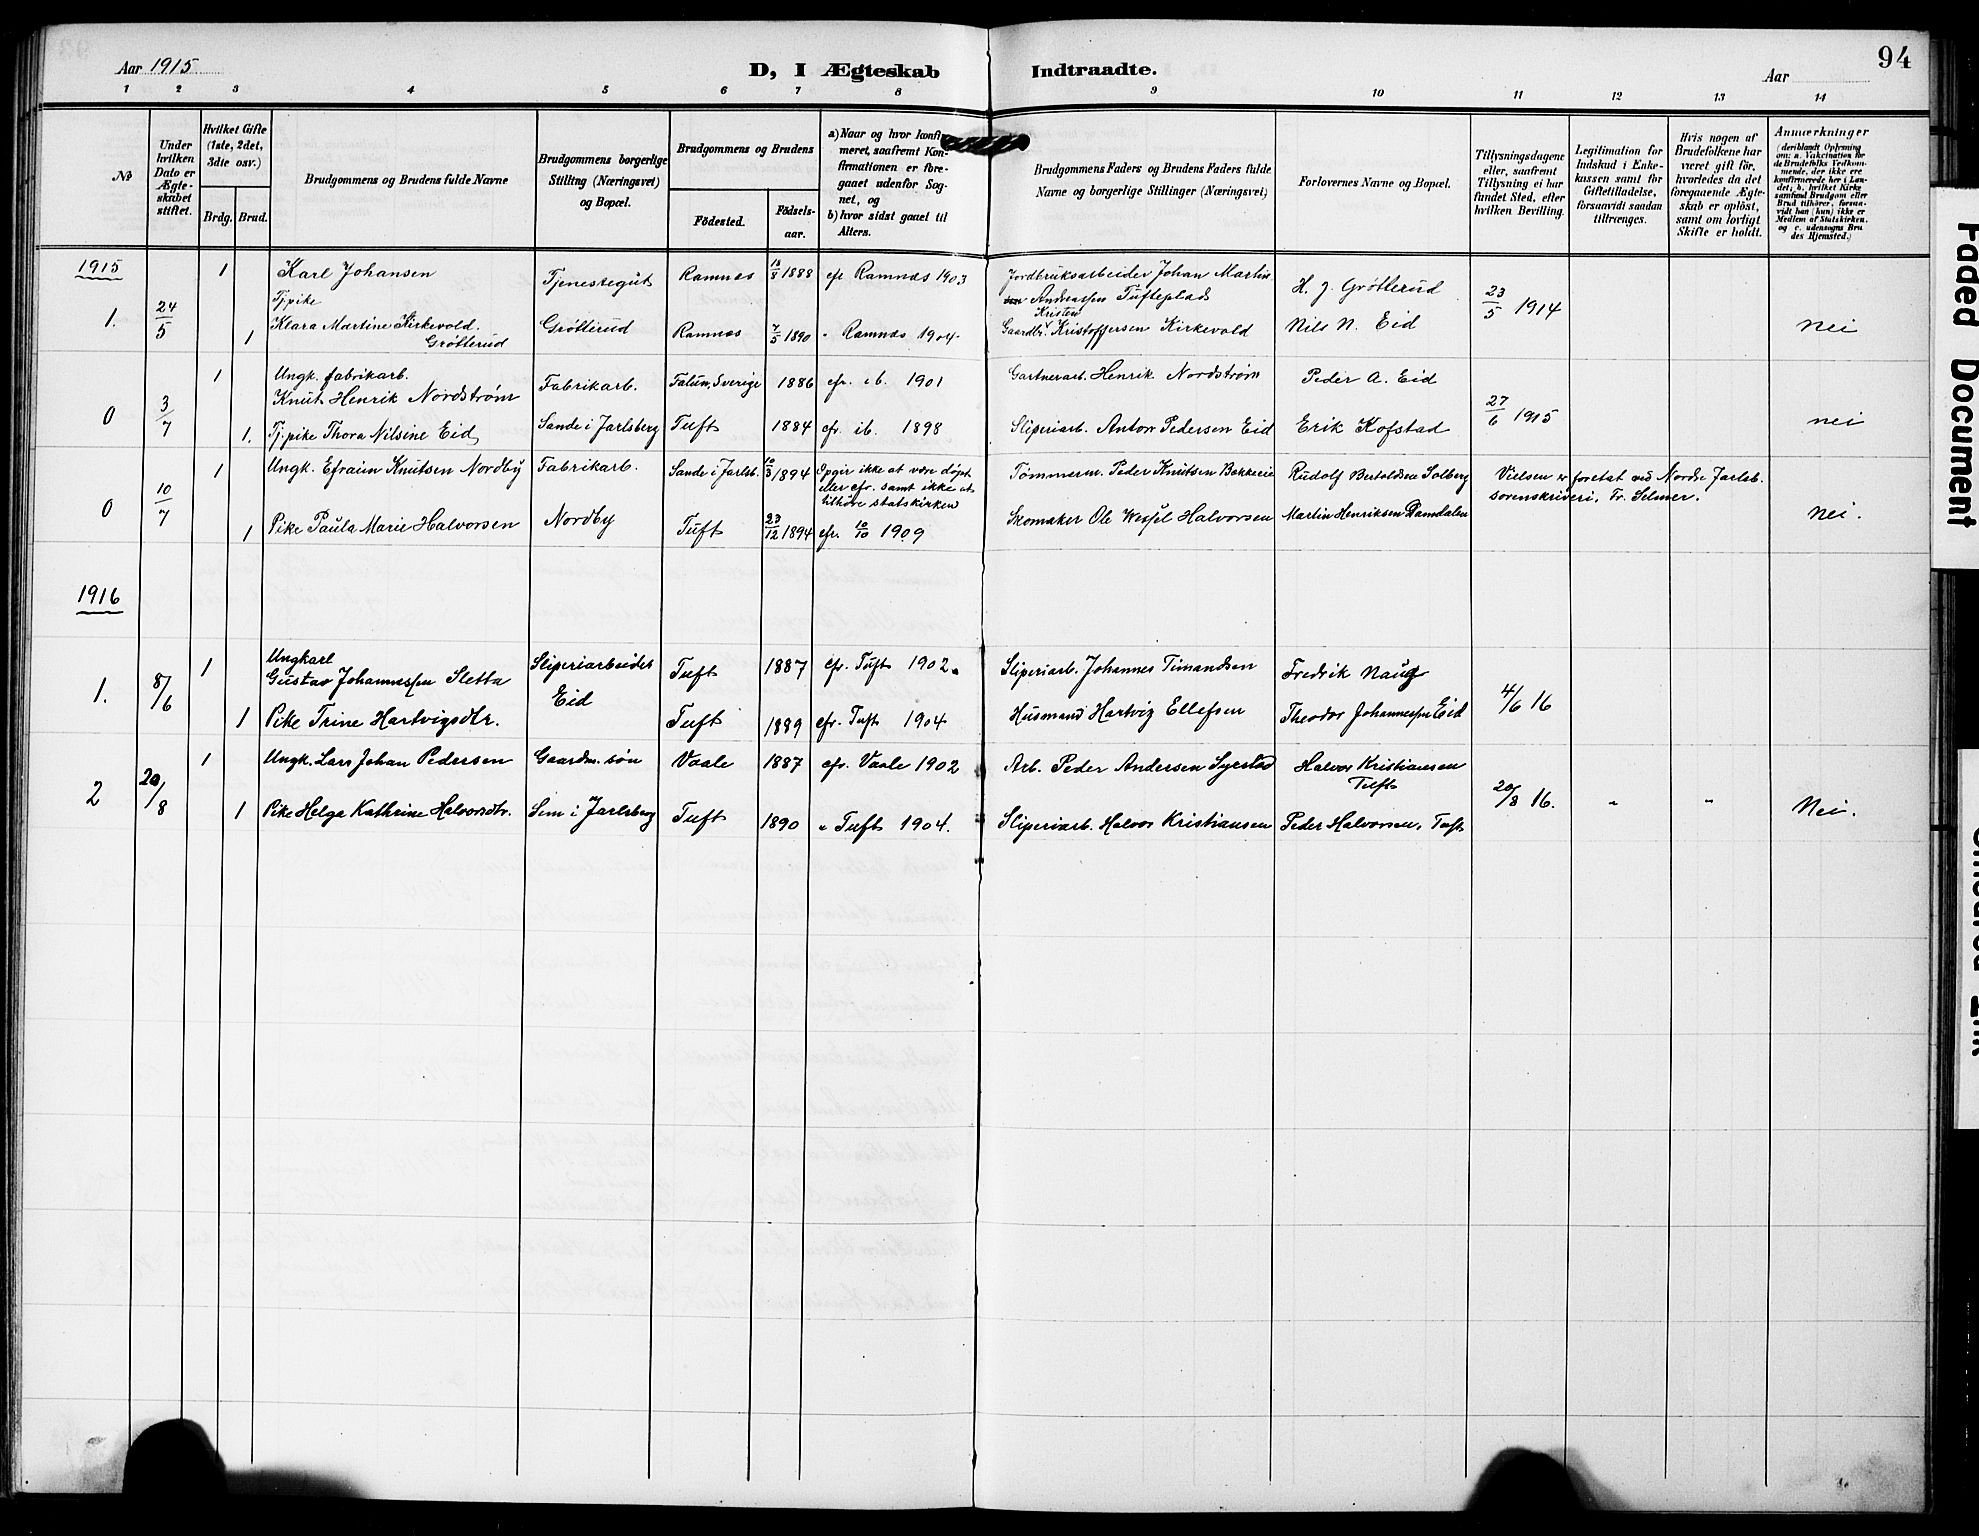 Aar 1915
D, I Ægteskab Indtraadte.
Aar
94
1 2 3 4 5 6 7 8 9 10 11 12 13 14
No
Under hvilken Dato er Ægteskabet stiftet.
Hvilket Gifte (1ste, 2det, 3die osv.)
Brdg. Brud.
Brudgommens og Brudens fulde Navne
Brudgommens borgerlige Stilling (Næringsvei) og Bopæl.
Brudgommens og Brudens
Fødested.
Fødsels-aar.
a) Naar og hvor konfirmeret, saafremt Konfirmationen er foregaaet udenfor Sognet, og
b) hvor sidst gaaet til Alters.
Brudgommens Faders og Brudens Faders fulde Navne og borgerlige Stillinger (Næringsvei)
Forlovernes Navne og Bopæl.
Tillysningsdagene eller, saafremt Tillysning ei har fundet Sted, efter hvilken Bevilling.
Legitimation for Indskud i Enkekassen samt for Giftetilladelse, forsaavidt saadan tiltrænges.
Hvis nogen af Brudefolkene har været gift før, hvorledes da det foregaaende Ægteskab er opløst, samt om lovligt Skifte er holdt.
Anmerkninger (deriblandt Oplysning om: a. Vakcination for de Brudefolks Vedkommende, der ikke ere konfirmerede her i Landet; b. hvilket Kirkesamfund Brudgom eller Brud tilhører, forsaavidt han (hun) ikke er Medlem af Statskirken, og c. udensogns Brudes Hjemsted.)
1915
1 Karl Johansen Tjenestegut Ramnes 13/8 1888 cfr Ramnes 1903 Jordbruksarbeider Johan Martin H. J. Grøtterud
1. 24/5 Tj.pike Andreassen Tufteplads 23/5 1914
Kristen
1 Klara Martine Kirkevold. Grøtterud Grøtterud Ramnes 7/5 1890 " Ramnes 1904. Gaardbr. Kristoffersen Kirkevold Nils N. Eid nei
1 Ungk. fabrikarb. Fabrikarb. Falun, Sverige 1886 cfr. ib. 1901 Gartnerarb. Henrik Nordstrøm Peder A. Eid
0 3/7 Knut Henrik Nordstrøm 27/6 1915
1. Tj.pike Thora Nilsine Eid Sande i Jarlsberg Tuft 1884 cfr. ib. 1898 Sliperiarb. Anton Pedersen Eid Erik Kofstad nei
1 Ungk. Efraim Knutsen Nordby Fabrikarb. Sande i Jarlsb. 10/3 1894 Opgir ikke at være døpt Tømmerm. Peder Knutsen Bekkerie Rudolf Bertoldsen Solberg Vielsen er foretat ved Nordre Jarlsb.
0 10/7 eller cfr. samt ikke at sorenskriveri, Fr. Selmer.
tilhøre statskirken
1 Pike Paula Marie Halvorsen Nordby Tuft 23/12 1894 cfr. 10/10 1909 Skomaker Ole Wessel Halvorsen Martin Henriksen Damdalen nei.
1916
1 Ungkarl Sliperiarbeider Tuft 1887 cfr. Tuft 1902. Sliperiarb. Johannes Timandsen Fredrik Naug
1. 8/6 Gustav Johannessen Sletta Eid 4/6 16
1 Pike Trine Hartvigsdtr. Tuft 1889 cfr. Tuft 1904 Husmand Hartvig Ellefsen Theodor Johannessen Eid
1 Ungk. Lars Johan Pedersen Gaardm. søn Vaale 1887 cfr. Vaale 1902 Arb. Peder Andersen Syrstad Halvor Kristiansen Tuft
2 20/8 20/8 16. " "
1 Pike Helga Kathrine Halvorsdtr. Sem i Jarlsberg Tuft 1890 " Tuft 1904. Sliperiarb. Halvor Kristiansen Peder Halvorsen, Tuft Nei.
Faded Document